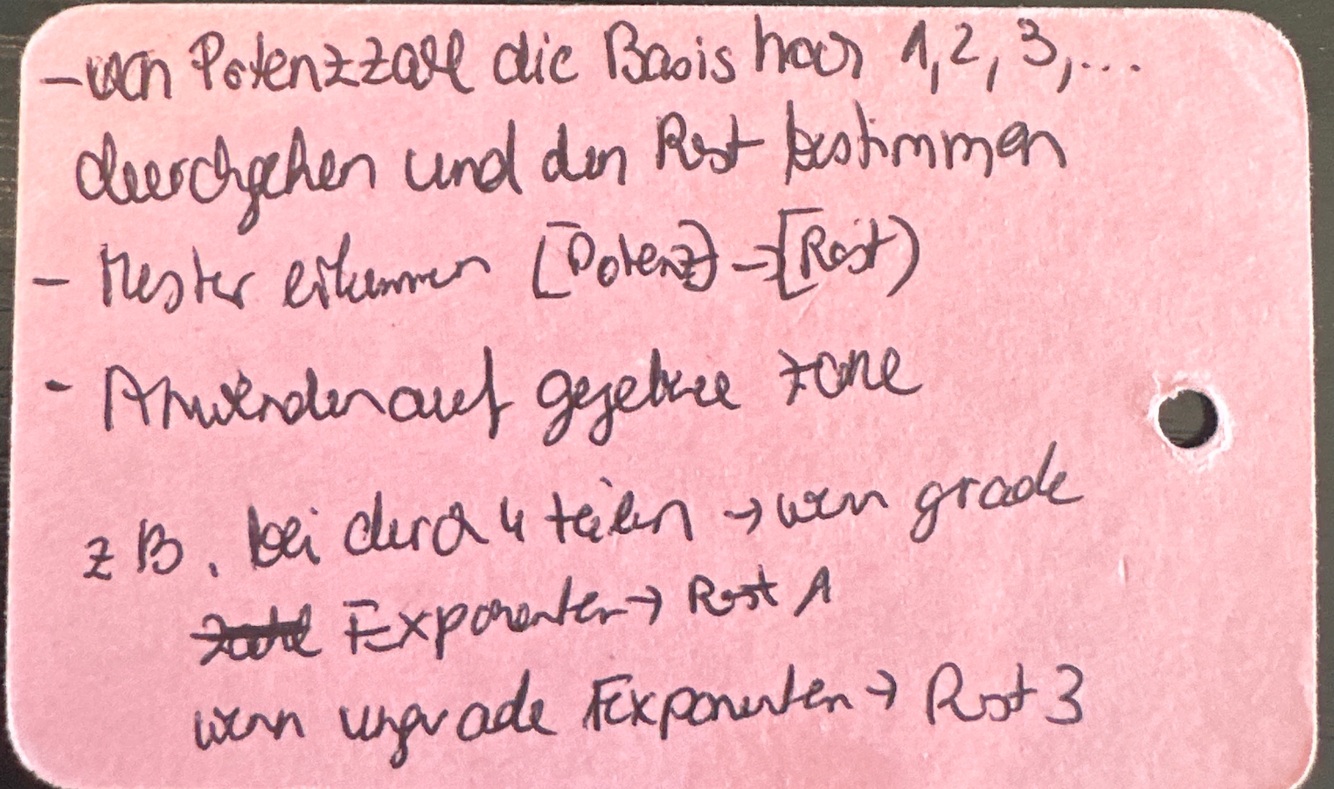 - von Potenzzahl die Basis hoch 1, 2, 3, ...
durchgehen und den Rest bestimmen
- Muster erkennen [Potenz) → [Rest)
- Anwenden auf gegebene Zahl
z B. bei durch 4 teilen → wenn grade
Exponenten → Rest 1
wenn ungrade Exponenten → Rest 3